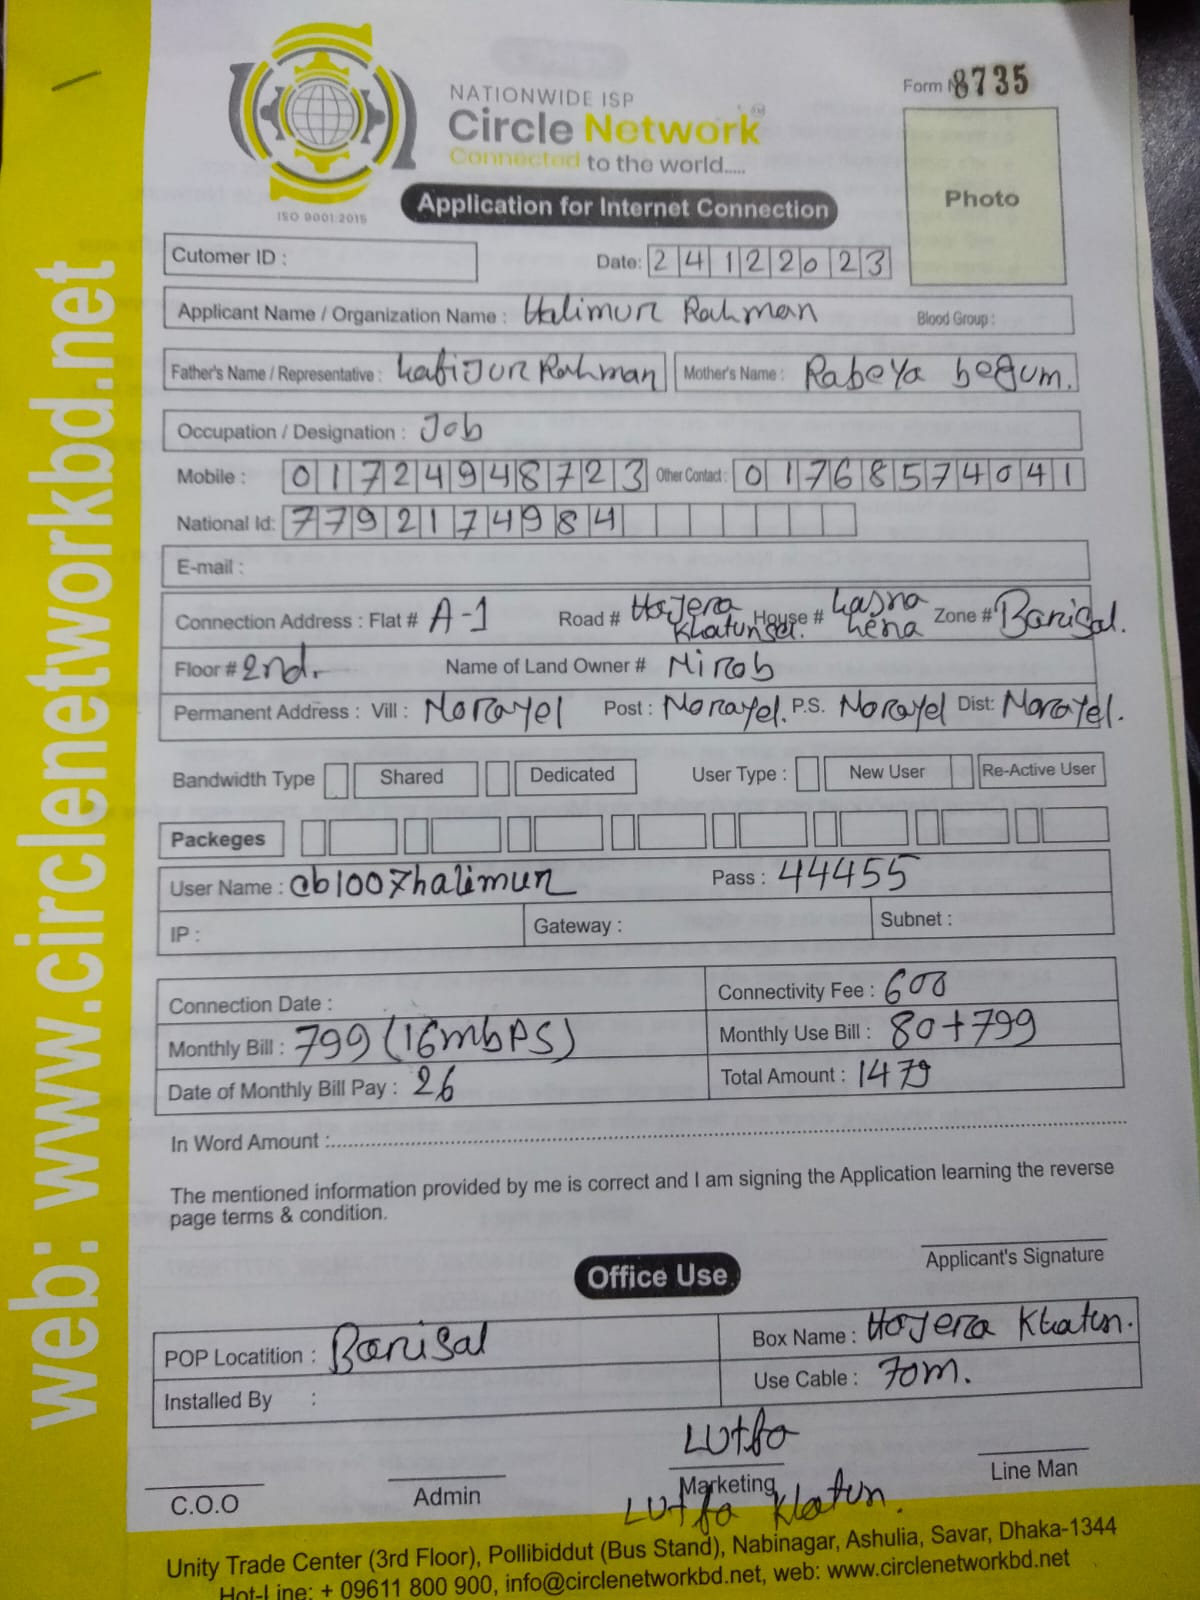 NATIONWIDE ISP
Circle Network
Connected to the world.....
ISO 9001:2015
Form N 8735
Photo
Application for Internet Connection
Cutomer ID :
Date: 24122023
Applicant Name / Organization Name : Halimur Rahman Blood Group :
Father's Name / Representative : Habijur Rahman Mother's Name : Rabeya begum.
Occupation / Designation : Job
Mobile : 01724948723 Other Contact : 01768574041
National Id: 7792174984
E-mail :
Connection Address : Flat # A-1 Road # Hojera Khatun House # hasna hena Zone # Barisal.
Floor # 2nd. Name of Land Owner # Mirab
Permanent Address : Vill : Norayel Post : Norayel. P.S. Norayel Dist: Norayel.
Bandwidth Type Shared Dedicated User Type : New User Re-Active User
Packeges
User Name : cb1007halimur Pass : 44455
IP : Gateway : Subnet :
Connection Date : Connectivity Fee : 600
Monthly Bill : 799 (16mbps) Monthly Use Bill : 80+799
Date of Monthly Bill Pay : 26 Total Amount : 1479
In Word Amount :
The mentioned information provided by me is correct and I am signing the Application learning the reverse
page terms & condition.
Applicant's Signature
Office Use
POP Locatition : Barisal Box Name : Hojera Khatun.
Installed By : Use Cable : 70m.
Lutfa
C.O.O Admin Marketing Line Man
Lutfa Khatun.
Unity Trade Center (3rd Floor), Pollibiddut (Bus Stand), Nabinagar, Ashulia, Savar, Dhaka-1344
Hot-Line: + 09611 800 900, info@circlenetworkbd.net, web: www.circlenetworkbd.net
web: www.circlenetworkbd.net